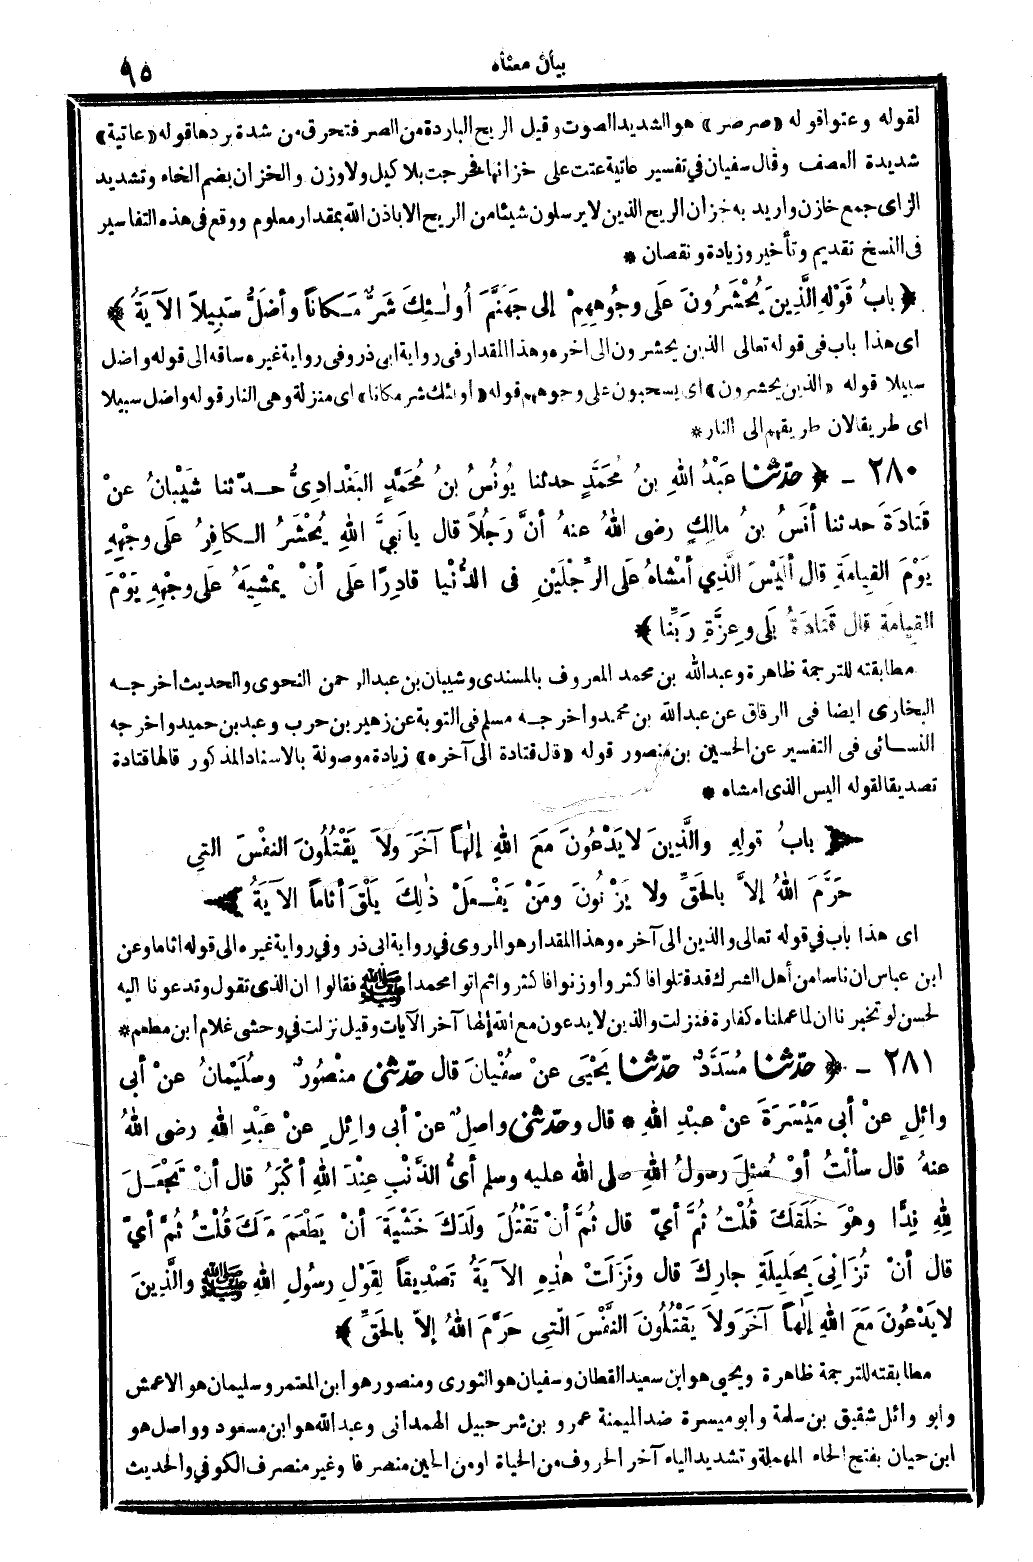 بيان معناه
٩٥
لقوله وعتوا قوله «صرصر» هو الشديد الصوت وقيل الريح الباردة من الصر فتحرق من شدة بردها قوله «عاتية»
شديدة العصف وقال سفيان في تفسير عاتية عتت على خزانها فخرجت بلا كيل ولا وزن والخزان بضم الخاء وتشديد
الزاى جمع خازن واريد به خزان الريح الذين لا يرسلون شيئا من الريح الا باذن الله بمقدار معلوم ووقع فى هذه التفاسير
فى النسخ تقديم وتأخير وزيادة ونقصان *
﴿ بابُ قَوْلِهِ الَّذِينَ يُحْشَرُونَ عَلَى وجُوهِهِمْ إلى جَهَنَّمَ أُولٰئِكَ شَرٌّ مَكاناً وأضَلُّ سَبِيلاً الآيَةُ ﴾
اى هذا باب فى قوله تعالى الذين يحشرون الى اخره وهذا المقدار فى رواية ابى ذر وفى رواية غيره ساقه الى قوله واضل
سبيلا قوله «الذين يحشرون» اى يسحبون على وجوههم قوله «أولئك شر مكانا» اى منزلة وهى النار قوله واضل سبيلا
اى طريقا لان طريقهم الى النار *
٢٨٠ - ﴿ حَدَّثَنَا عَبْدُ اللهِ بنُ مُحَمَّدٍ حدثنا يُونُسُ بنُ مُحَمَّدٍ البَغْدادِىُّ حدّثنا شَيْبانُ عنْ
قَتَادَةَ حدثنا أنَسُ بنُ مالِكٍ رضى اللهُ عنهُ أنَّ رَجُلاً قال يانَبِىَّ اللهِ يُحْشَرُ الكافِرُ عَلَى وجْهِهِ
يَوْمَ القِيامَةِ قال ألَيْسَ الَّذِي أمْشاهُ عَلَى الرِّجْلَيْنِ فى الدُّنْيا قادِرًا عَلَى أنْ يمْشِيَهُ عَلَى وجْهِهِ يَوْمَ
القِيامَةِ قال قَتَادَةُ بَلَى وعِزَّةِ رَبِّنا ﴾
مطابقته للترجمة ظاهرة وعبدالله بن محمد المعروف بالمسندى وشيبان بن عبد الرحمن النحوى والحديث اخرجه
البخارى ايضا فى الرقاق عن عبدالله بن محمد واخرجه مسلم فى التوبة عن زهير بن حرب وعبد بن حميد واخرجه
النسائى فى التفسير عن الحسين بن منصور قوله «قال قتادة الى آخره» زيادة موصولة بالاسناد المذكور قالها قتادة
تصديقا لقوله اليس الذى امشاه *
﴿ بابُ قولِهِ والَّذِينَ لايَدْعُونَ مَعَ اللهِ إلٰهاً آخَرَ ولاَ يَقْتُلُونَ النفْسَ التِي
حَرَّمَ اللهُ إلاَّ بالحَقِّ ولا يَزْنُونَ ومَنْ يَفْعَلْ ذٰلِكَ يَلْقَ أثاماً الآيَةُ ﴾
اى هذا باب في قوله تعالى والذين الى آخره وهذا المقدار هو المروى في رواية ابى ذر وفي رواية غيره الى قوله اثاما وعن
ابن عباس ان ناسا من أهل الشرك قد قتلوا فاكثروا وزنوا فاكثروا ثم اتوا محمدا ﷺ فقالوا ان الذى تقول وتدعونا اليه
لحسن لو تخبرنا ان لما عملناه كفارة فنزلت والذين لايدعون مع الله إلها آخر الآيات وقيل نزلت في وحشى غلام ابن مطعم *
٢٨١ - ﴿ حَدَّثَنَا مُسَدَّدٌ حَدَّثَنَا يَحْيَى عنْ سُفْيانَ قال حَدَّثَنى منْصُورٌ وسُلَيْمانُ عنْ أبى
وائِلٍ عنْ أبى مَيْسَرَةَ عنْ عبْدِ اللهِ * قال وحَدَّثَنى واصِلٌ عنْ أبى وائِلٍ عنْ عَبْدِ اللهِ رضى اللهُ
عنهُ قال سألْتُ أوْ سُئِلَ رسولُ اللهِ صلى الله عليه وسلم أىُّ الذَّنْبِ عِنْدَ اللهِ أكْبَرُ قال أنْ تَجْعَلَ
لِلهِ نِدًّا وهْوَ خَلَقَكَ قُلْتُ ثُمَّ أىّ قال ثُمَّ أنْ تَقْتُلَ ولَدَكَ خَشْيَةَ أنْ يَطْعَمَ مَعَكَ قُلْتُ ثُمَّ أىّ
قال أنْ تُزَانِىَ بِحَلِيلَةِ جارِكَ قال ونَزَلَتْ هٰذِهِ الآيَةُ تَصْدِيقاً لِقَوْلِ رسولِ اللهِ ﷺ والَّذِينَ
لايَدْعُونَ مَعَ اللهِ إلٰهاً آخَرَ ولاَ يَقْتُلُونَ النَّفْسَ الّتِي حَرَّمَ اللهُ إلاّ بالحَقِّ ﴾
مطابقته للترجمة ظاهرة ويحيى هو ابن سعيد القطان وسفيان هو الثورى ومنصور هو ابن المعتمر وسليمان هو الاعمش
وابو وائل شقيق بن سلمة وابو ميسرة ضد الميمنة عمرو بن شرحبيل الهمدانى وعبد الله هو ابن مسعود وواصل هو
ابن حيان بفتح الحاء المهملة وتشديد الياء آخر الحروف من الحياة او من الحين منصرفا وغير منصرف الكوفي والحديث